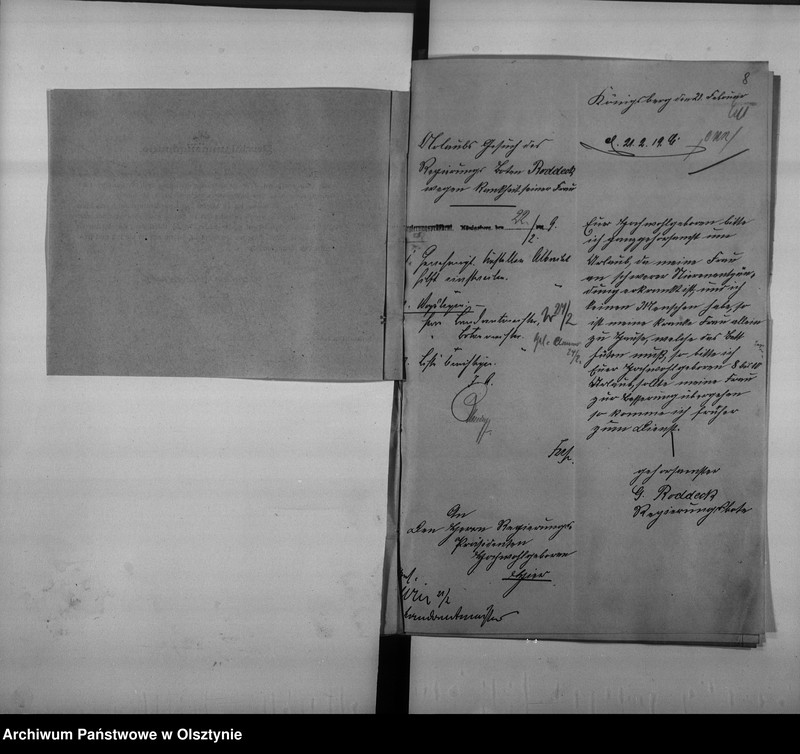 8
Königsberg den 21. Februar
21. 2. 19
Urlaubs Gesuch des
Regierungs Boten Roddeck
wegen Krankheit seiner Frau
Königsberg, den 22. / 2. 19.
1. Genehmigt.
hilft einstweilen.
2. Vorzulegen:
Herrn Landrentmeister,
" Botenmeister.
3. Liste berichtigen.
Euer Hochwohlgeboren bitte
ich ganzgehorsamst um
Urlaub, da meine Frau
an schwerer Nierenentzün-
dung erkrankt ist, und ich
keinen Menschen habe, so
ist meine kranke Frau allein
zu Hause, welche das Bett
hüten muß, so bitte ich
Euer Hochwohlgeboren 8 bis 10
Urlaub, sollte meine Frau
zur Besserung übergehen
so komme ich früher
zum Dienst.
gehorsamster
G. Roddeck
Regierungsbote
An
Den Herrn Regierungs
Präsidenten
Hochwohlgeboren
Hier
21/2
Landrentmeister
Archiwum Państwowe w Olsztynie